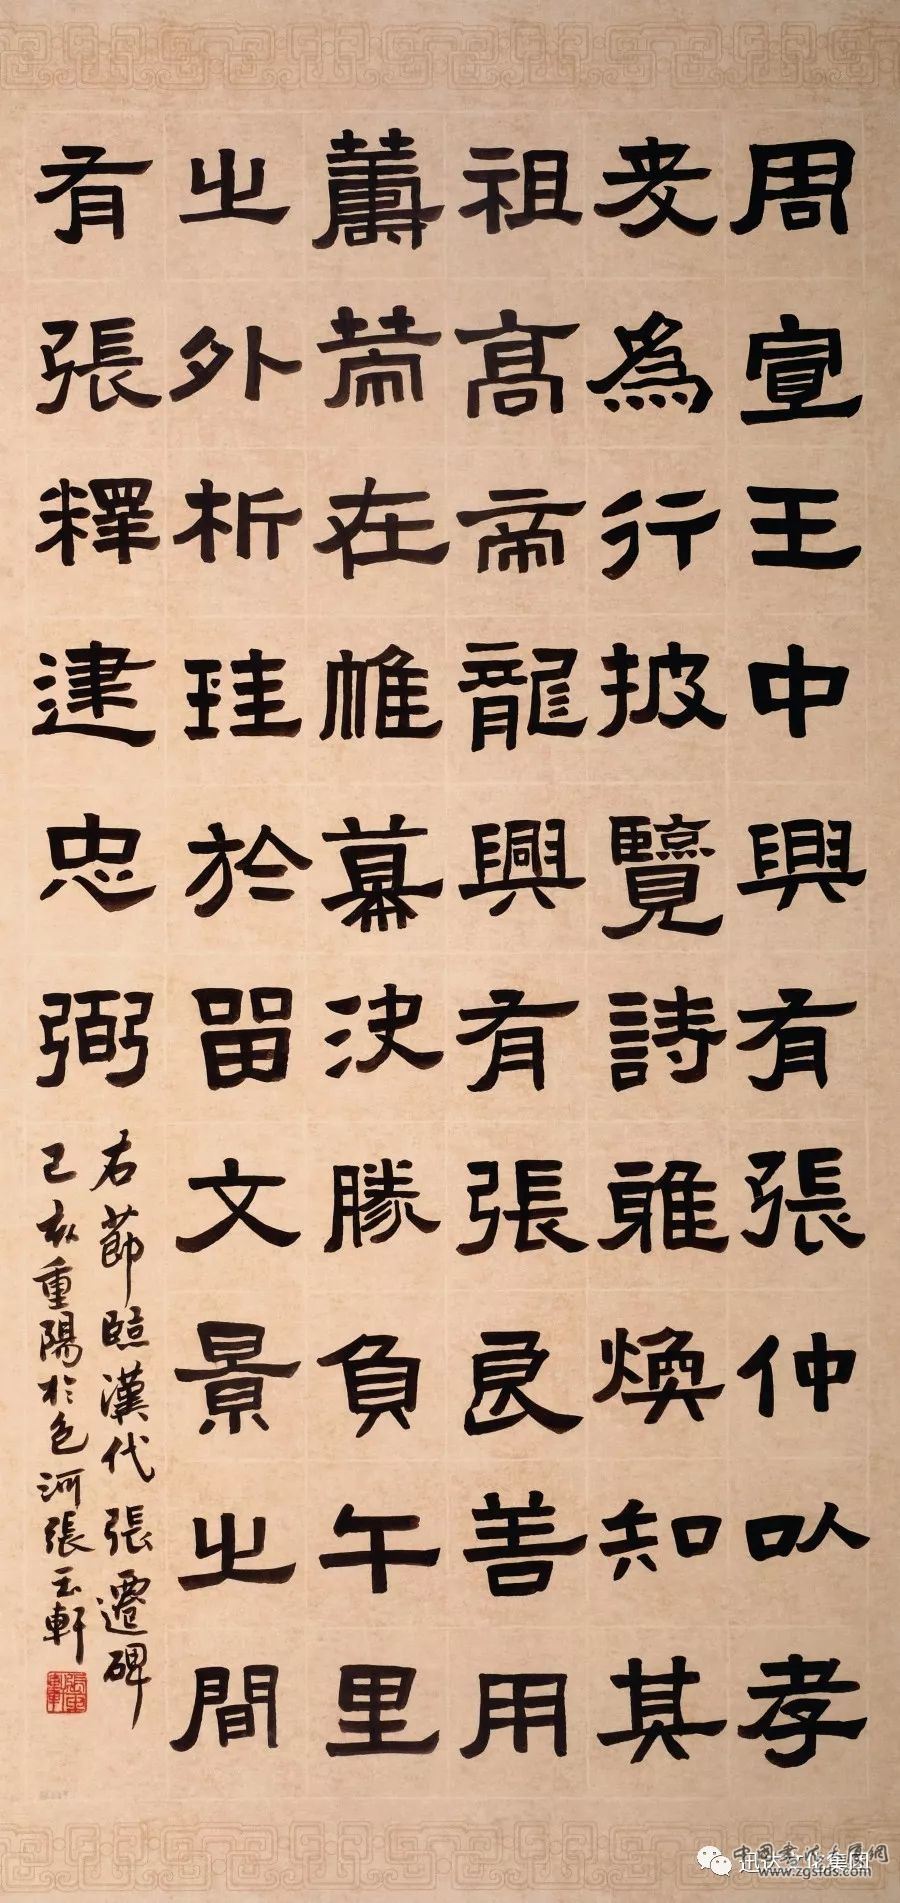 周宣王中興有張仲以孝
友為行披覽詩雅煥知其
祖高帝龍興有張良善用
籌策在帷幕決勝負千里
之外析珪於留文景之間
有張釋建忠弼
右節臨漢代張遷碑
己亥重陽於包河張軒
迅达文化集团